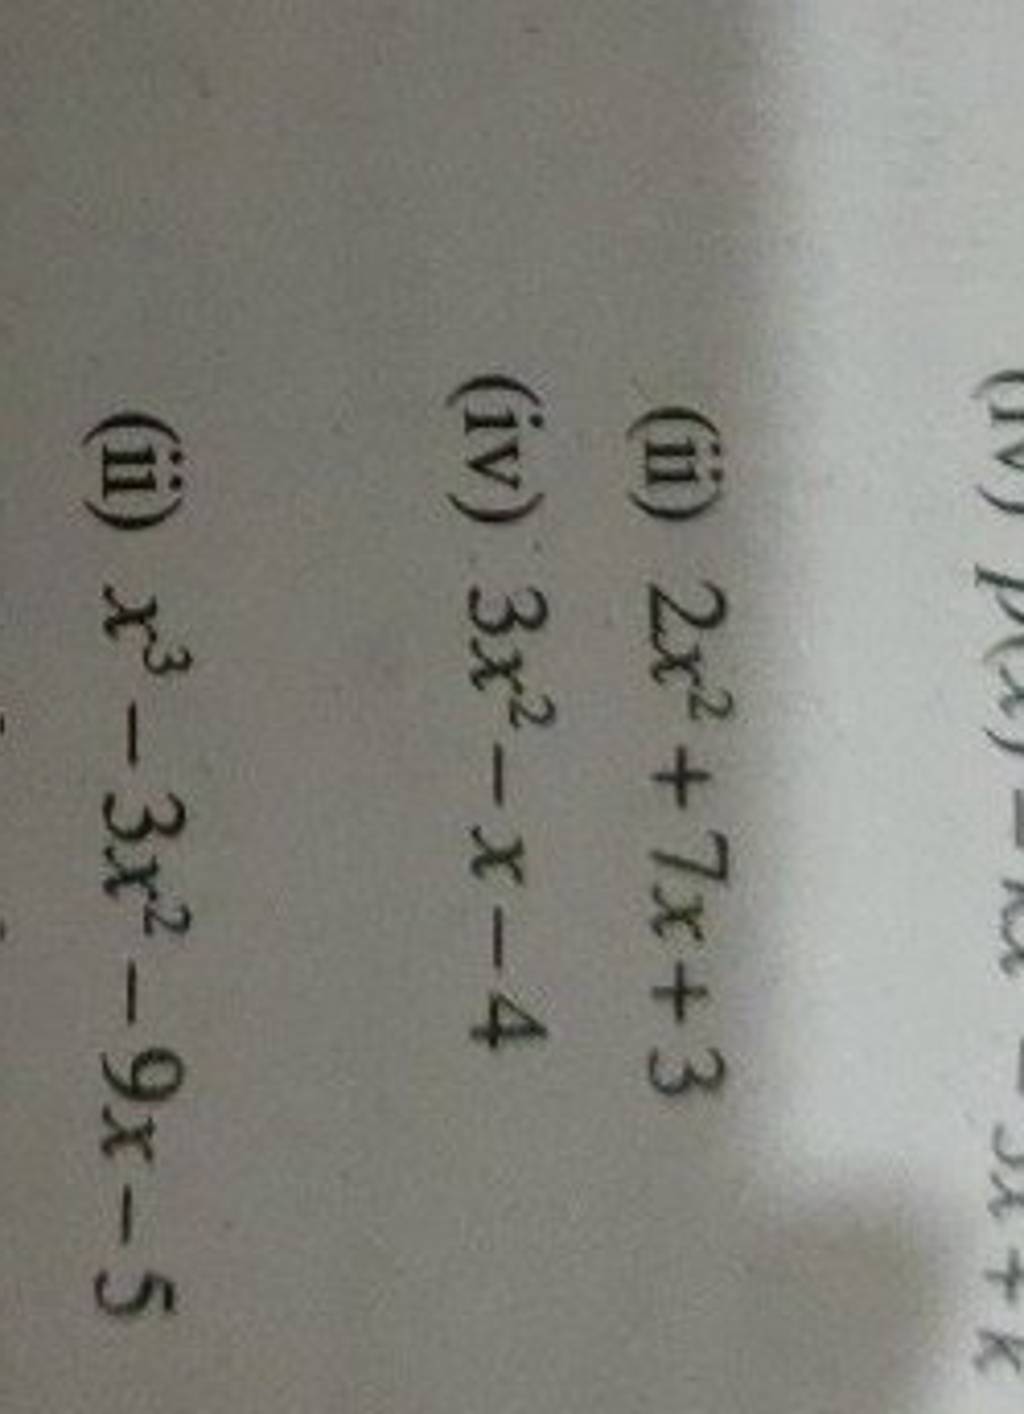 (iv) p(x) = kx² – 3x + k
(ii) 2x² + 7x + 3
(iv) 3x² – x – 4
(ii) x³ – 3x² – 9x – 5